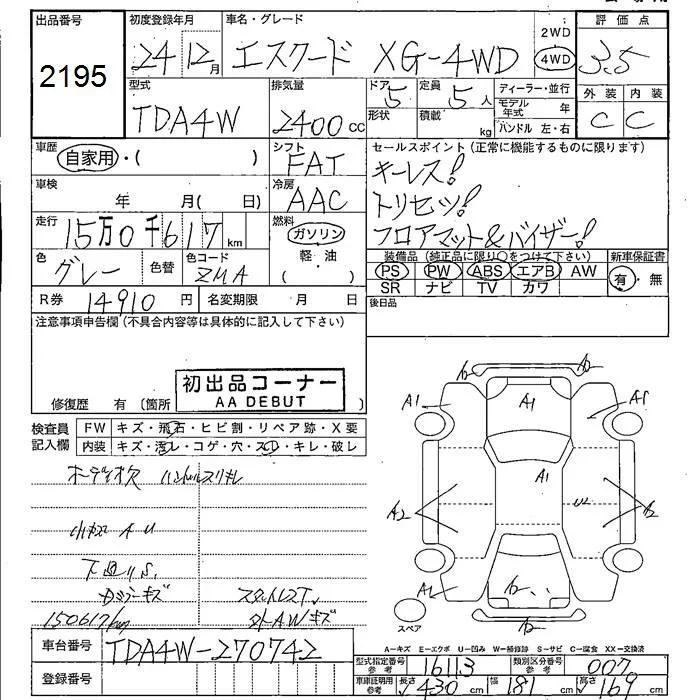 出品番号 2195
初度登録年月 24 12月
車名・グレード エスクード XG-4WD
2WD 4WD
評価点 3.5
型式 TDA4W
排気量 2400cc
ドア 5 形状
定員 5人 積載 kg
ディーラー・並行
モデル年式 年
ハンドル 左・右
外装 C 内装 C
車歴 自家用・( )
シフト FAT
セールスポイント(正常に機能するものに限ります)
キーレス!
トリセツ!
フロアマット&バイザー!
車検 年 月( 日)
冷房 AAC
走行 15万0千617km
燃料 ガソリン 軽・油 ( )
色 グレー 色替 色コード ZMA
装備品(純正品に限り○をつけて下さい) 新車保証書
PS PW ABS エアB AW 有・無
SR ナビ TV カワ
R券 14910円 名変期限 月 日
後日品
注意事項申告欄(不具合内容等は具体的に記入して下さい)
初出品コーナー
AA DEBUT
修復歴 有 〔箇所 〕
検査員記入欄
FW キズ・飛石・ヒビ割・リペア跡・X要
内装 キズ・汚レ・コゲ・穴・スレ・キレ・破レ
オーディオ欠 ハンドルスリキレ
小キズ A U
下廻りS.
150617km
外AWキズ
A1 A1 A1
A1
A2 U2
A1
スペア
A-キズ E-エクボ U-凹み W-補修跡 S-サビ C-腐食 XX-交換済
車台番号 TDA4W-270742
登録番号
型式指定番号 参考 16113 類別区分番号 参考 007
車車証明用 参考 長さ 430 cm 幅 181 cm 高さ 169 cm